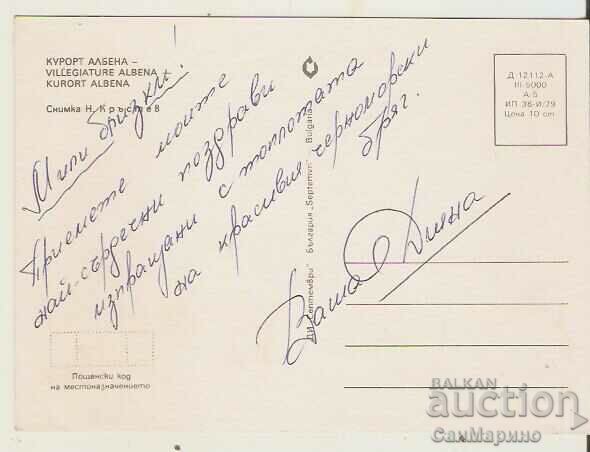 КУРОРТ АЛБЕНА –
VILLEGIATURE ALBENA
KURORT ALBENA
Снимка Н. Кръстев
Мили близки!
Приемете моите
най-сърдечни поздрави
изпращани с топлотата
на красивия черноморски
бряг.
Ваша Дияна
ДИ „Септември" България „Septemvri" Bulgaria
Д 12112-А
III-5000
А-5
ИП 36-И/79
Цена 10 ст
Пощенски код
на местоназначението
BALKAN
auction
СанМарино